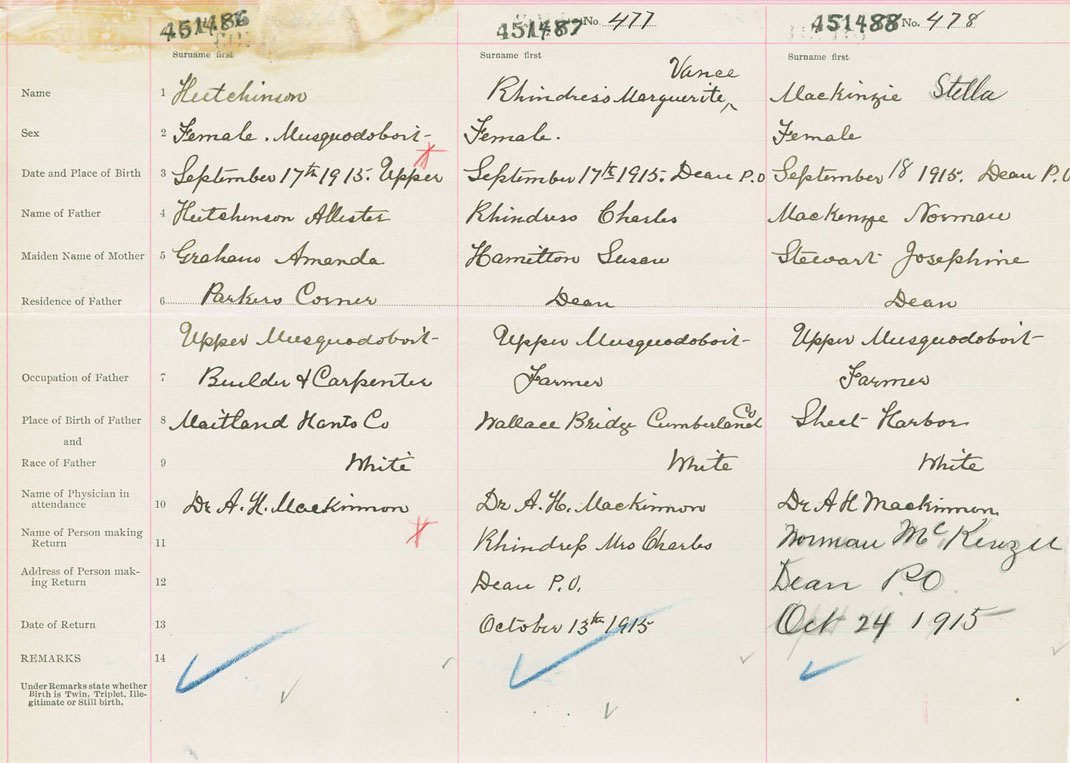 451486 451487 No. 477 451488 No. 478
Surname first Surname first Surname first
Vance
Name 1 Hutchinson Rhindress Marguerite ^ Mackinzie Stella
Sex 2 Female. Musquodoboit Female. Female
Date and Place of Birth 3 September 17th 1915. Upper September 17th 1915. Dean P.O September 18 1915. Dean P.O
Name of Father 4 Hutchinson Allister Rhindress Charles Mackenzie Norman
Maiden Name of Mother 5 Graham Amanda Hamilton Susan Stewart Josephine
Residence of Father 6 Parkers Corner Dean Dean
Upper Musquodoboit Upper Musquodoboit Upper Musquodoboit
Occupation of Father 7 Builder & Carpenter Farmer Farmer
Place of Birth of Father 8 Maitland Hants Co Wallace Bridge Cumberland Co Sheet Harbor
and
Race of Father 9 White White White
Name of Physician in
attendance 10 Dr A. H. Mackinnon Dr A. H. Mackinnon Dr A H Mackinnon
Name of Person making
Return 11 Rhindress Mrs Charles Norman McKenzie
Address of Person mak-
ing Return 12 Dean P.O. Dean P.O
Date of Return 13 October 13th 1915 Oct 24 1915
REMARKS 14
Under Remarks state whether
Birth is Twin, Triplet, Ille-
gitimate or Still birth.